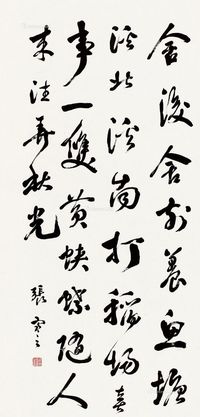 舍後舍前養魚塘
溪北溪南打稻場喜
事一雙黃蛺蝶隨人
來往弄秋光
張之